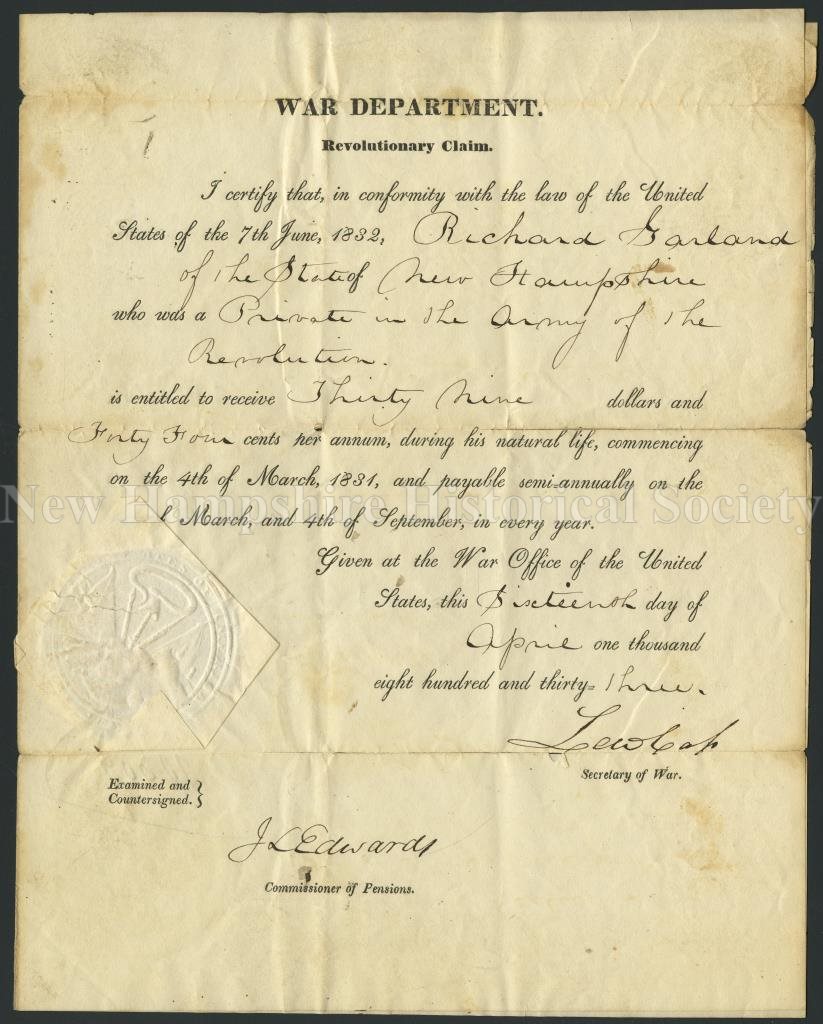 WAR DEPARTMENT.
Revolutionary Claim.
I certify that, in conformity with the law of the United
States of the 7th June, 1832, Richard Garland
of the State of New Hampshire
who was a Private in the Army of the
Revolution.
is entitled to receive Thirty Nine dollars and
Forty Four cents per annum, during his natural life, commencing
on the 4th of March, 1831, and payable semi-annually on the
New Hampshire Historical Society
March, and 4th of September, in every year.
Given at the War Office of the United
States, this Sixteenth day of
April one thousand
eight hundred and thirty=three.
Lew Cass
Secretary of War.
Examined and
Countersigned.
J L Edwards
Commissioner of Pensions.